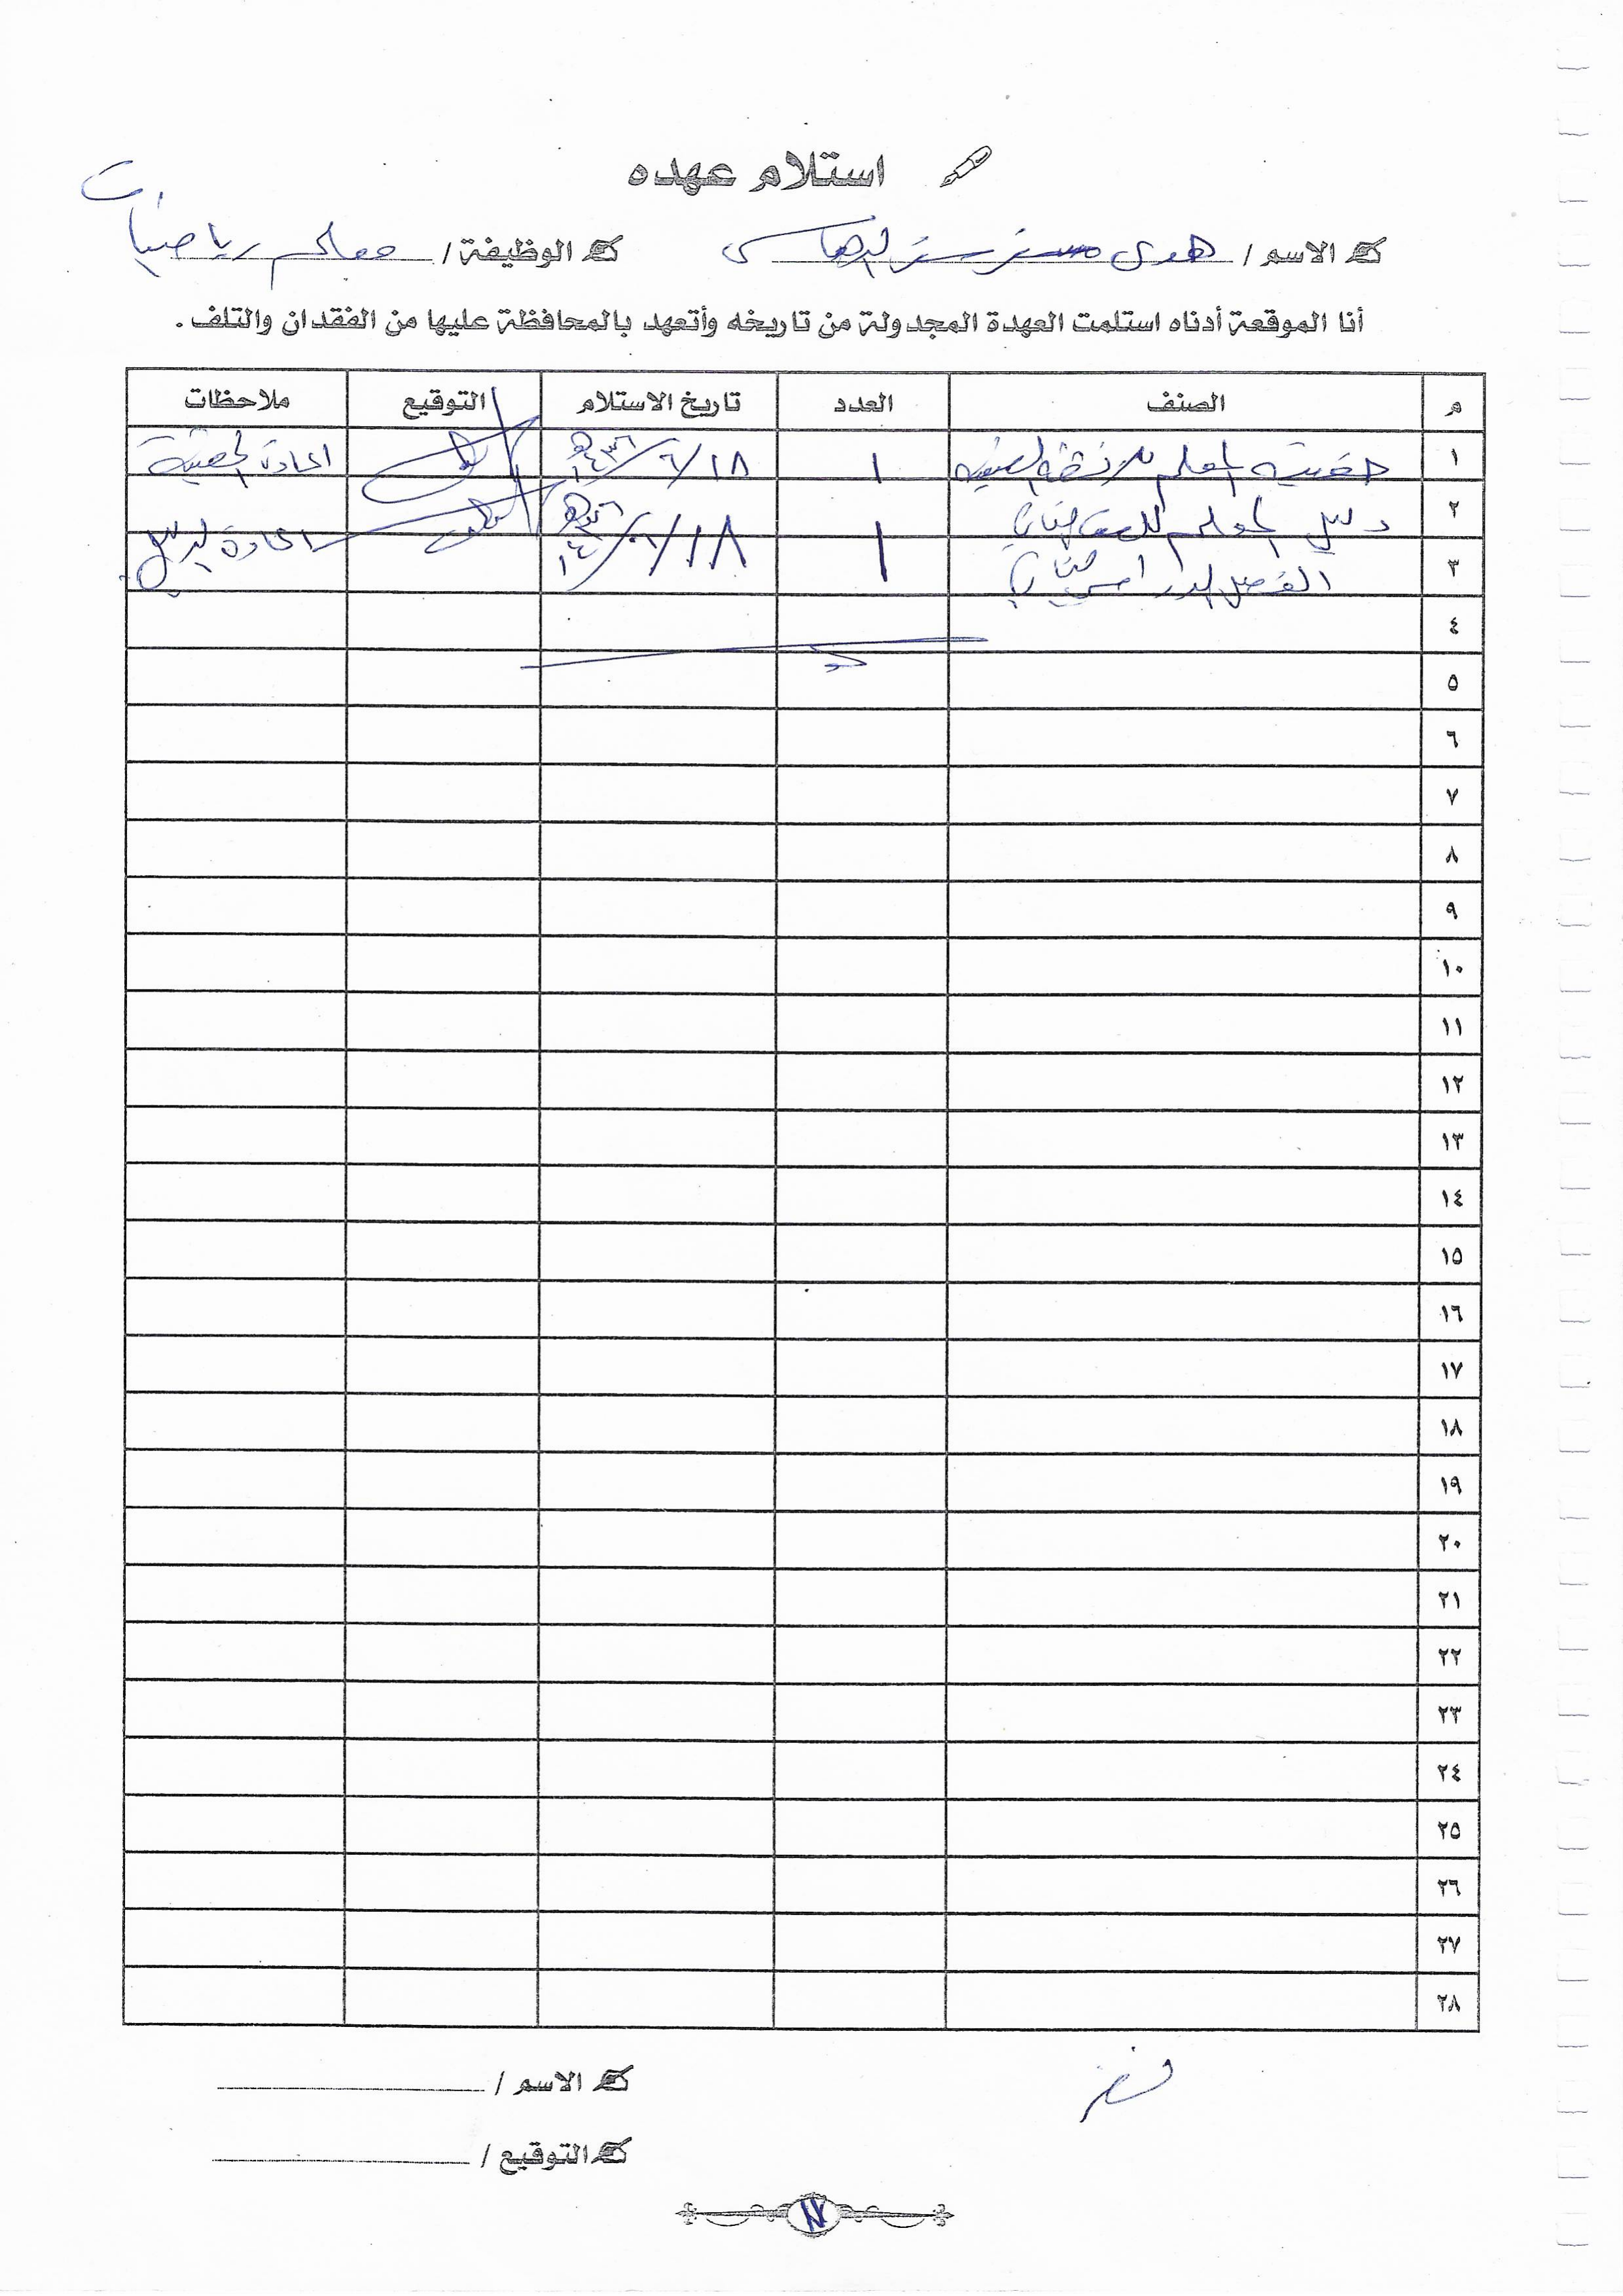 استلام عهده
الاسم / هدى الوظيفة / معلم رياضيات
أنا الموقعة أدناه استلمت العهدة المجدولة من تاريخه وأتعهد بالمحافظة عليها من الفقدان والتلف .
م الصنف العدد تاريخ الاستلام التوقيع ملاحظات
١ حقيبة المعلم ١ ١٨/٦/١٤٣٦هـ إعادة الحقيبة
٢ دليل المعلم للصف الثاني ١ ١٨/٦/١٤٣٦هـ إعادة
٣ الفصل الدراسي الثاني
٤
٥
٦
٧
٨
٩
١٠
١١
١٢
١٣
١٤
١٥
١٦
١٧
١٨
١٩
٢٠
٢١
٢٢
٢٣
٢٤
٢٥
٢٦
٢٧
٢٨
الاسم /
التوقيع /